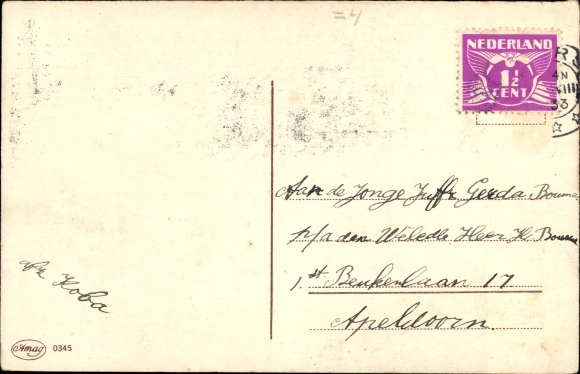 =4
NEDERLAND
1½
CENT
R
4N
VIII
33
Aan de Jonge Juffr Gerda Bouma
p/a den Weledle Heer H. Bouma
1.st Beukenlaan 17
Apeldoorn.
Koba
Amag 0345